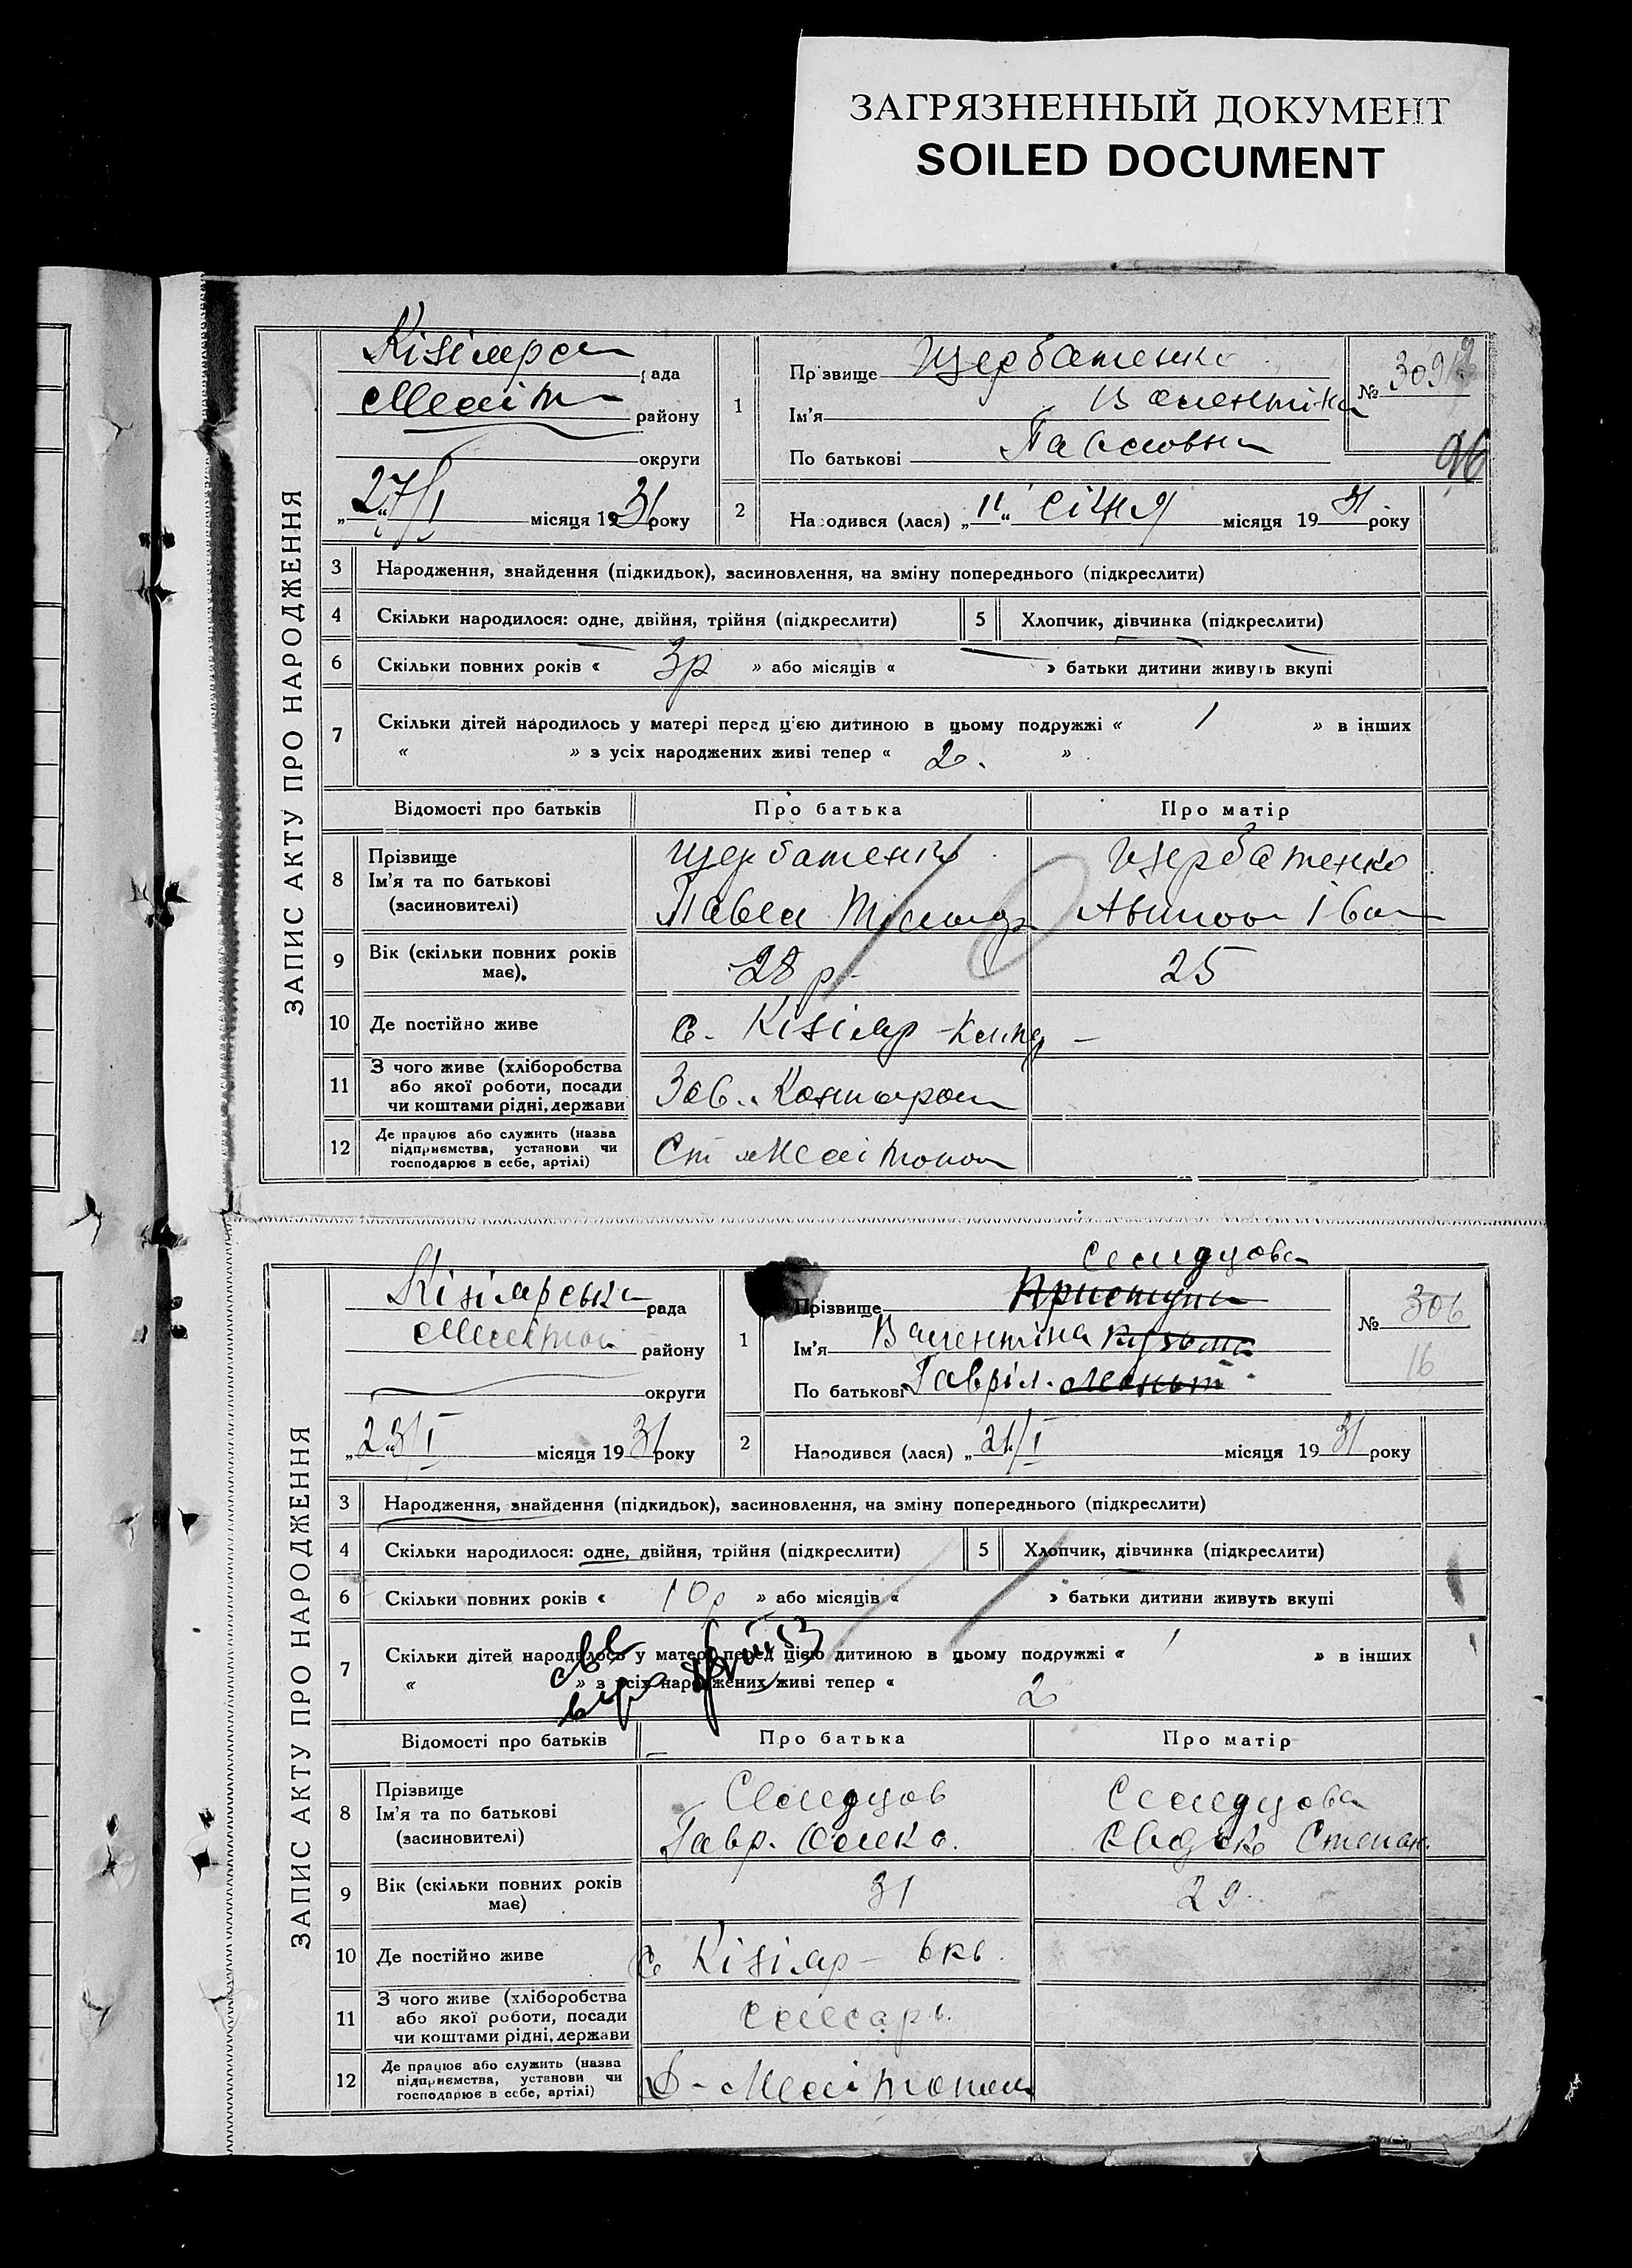 ЗАГРЯЗНЕННЫЙ ДОКУМЕНТ
SOILED DOCUMENT
ЗАПИС АКТУ ПРО НАРОДЖЕННЯ
Кізіярсь рада
Меліт району
округи
„27/I“ місяця 1931 року
1
Прізвище Щербатенко
Ім'я Валентіна
По батькові Павловна
№ 309
96
2 Народився (лася) „11“ січня місяця 1931 року
3 Народження, знайдення (підкидьок), засиновлення, на зміну попереднього (підкреслити)
4 Скільки народилося: одне, двійня, трійня (підкреслити) 5 Хлопчик, дівчинка (підкреслити)
6 Скільки повних років « 3р » або місяців « » батьки дитини живуть вкупі
7 Скільки дітей народилось у матері перед цією дитиною в цьому подружжі « 1 » в інших
« » з усіх народжених живі тепер « 2. »
Відомості про батьків Про батька Про матір
8 Прізвище Ім'я та по батькові (засновителі)
Щербатенко Щербатенко
Павел Іван
9 Вік (скільки повних років має). 28 р. 25
10 Де постійно живе с. Кізіяр -
11 З чого живе (хліборобства або якої роботи, посади чи коштами рідні, держави Зав. Конторою
12 Де працює або служить (назва підприємства, установи чи господарює в себе, артілі) Ст Мелітополь
ЗАПИС АКТУ ПРО НАРОДЖЕННЯ
Кізіярська рада
Мелітоп району
округи
„23/I“ місяця 1931 року
Селидцова
1
Прізвище Приступа
Ім'я Валентіна Кузьма
По батькові Гавріл.
№ 306
16
2 Народився (лася) „21/I місяця 1931 року
3 Народження, знайдення (підкидьок), засиновлення, на зміну попереднього (підкреслити)
4 Скільки народилося: одне, двійня, трійня (підкреслити) 5 Хлопчик, дівчинка (підкреслити)
6 Скільки повних років « 10р » або місяців « » батьки дитини живуть вкупі
7 Скільки дітей народилось у матері перед цією дитиною в цьому подружжі « 1 » в інших
« » з усіх народжених живі тепер « 2
Відомості про батьків Про батька Про матір
8 Прізвище Ім'я та по батькові (засиновителі)
Селидцов Селидцова
Гавр. Олекс. Степан.
9 Вік (скільки повних років має) 31 29
10 Де постійно живе с Кізіяр -
11 З чого живе (хліборобства або якої роботи, посади чи коштами рідні, держави слесарь.
12 Де працює або служить (назва підприємства, установи чи господарює в себе, артілі) Мелітополь